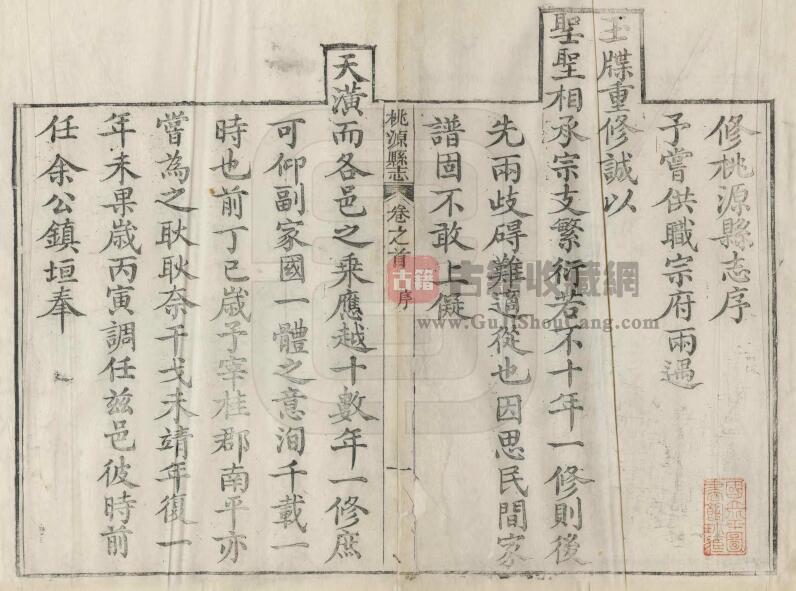 修桃源縣志序
予嘗供職宗府兩遇
玉牒重修誠以
聖聖相承宗支繁衍若不十年一修則後
先兩歧碍難適從也因思民間家
譜固不敢上儗
桃源縣志 卷之首 序 一
天潢而各邑之乗應越十數年一修庶
可仰副家國一體之意洵千載一
時也前丁巳歲予宰桂郡南平亦
嘗為之耿耿奈干戈未靖年復一
年未果歲丙寅調任茲邑彼時前
任余公鎮垣奉
古籍
古籍收藏網
www.GuJiShouCang.com